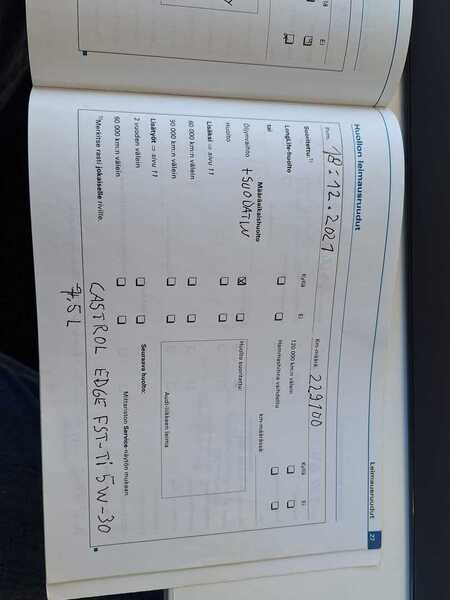 Leimausruudut 27
Huollon leimausruudut
Pvm. 18.12.2021
Km-määrä: 229100
Kyllä Ei
Suoritettu:¹⁾
LongLife-huolto
tai
Määräaikaishuolto
Öljynvaihto + SUODATIN
Huolto
Lisäksi ⇒ sivu 11
60 000 km:n välein
90 000 km:n välein
Lisätyöt ⇒ sivu 11
2 vuoden välein
60 000 km:n välein
Kyllä Ei
120 000 km:n välein
Hammashihna vaihdettu
km-määrässä
Huolto suoritettu:
Audi-liikkeen leima
Seuraava huolto:
Mittariston Service-näytön mukaan
¹⁾Merkitse rasti jokaiselle riville.
CASTROL EDGE FST-Ti 5W-30
7,5 L
Ei